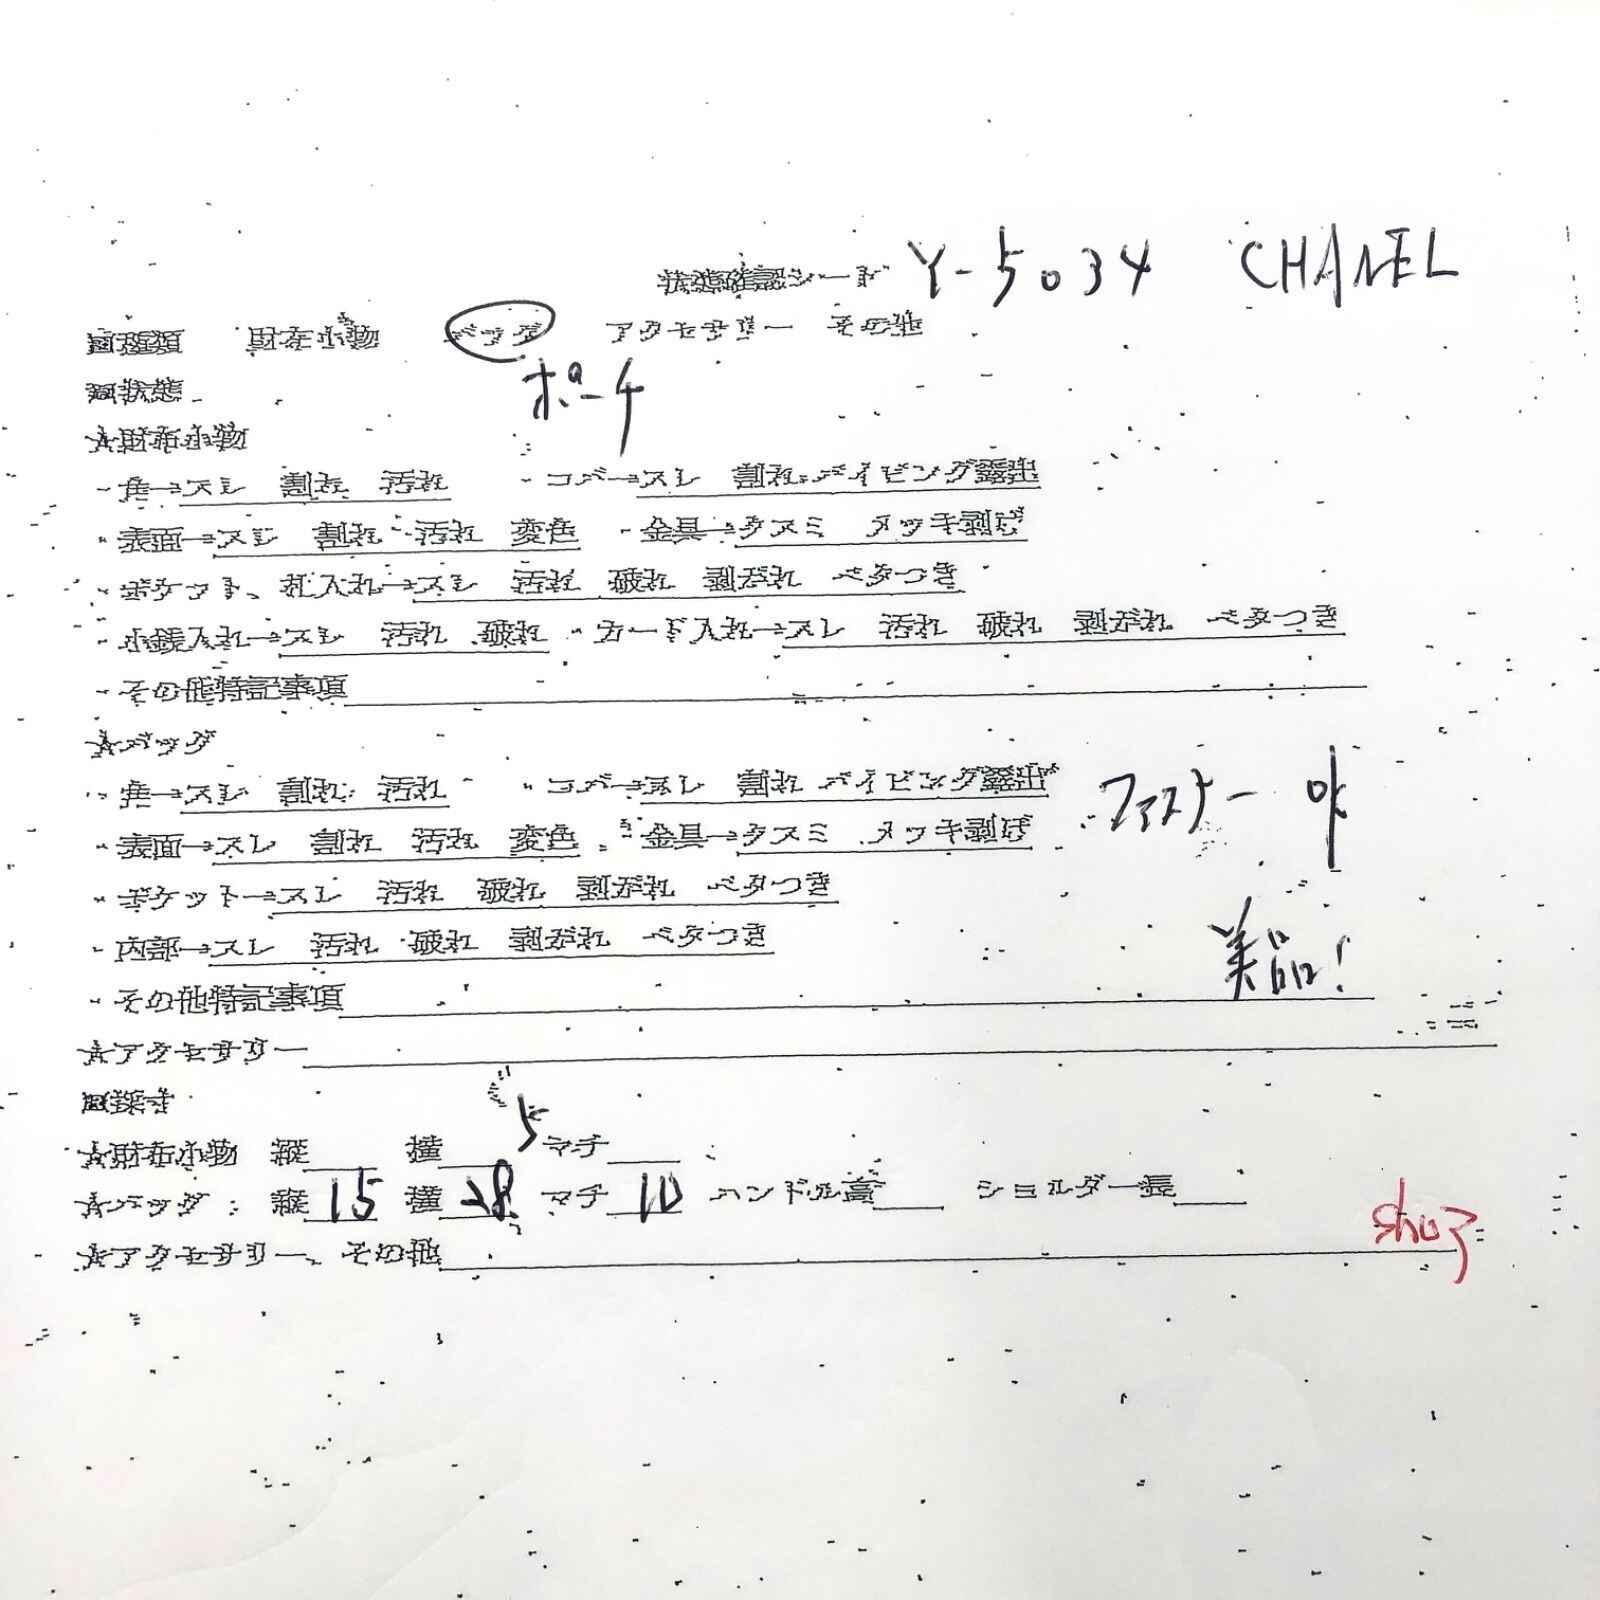 状態確認シート Y-5034 CHANEL
■種類 財布小物 バッグ アクセサリー その他
■状態 ポーチ
☆財布小物
・角→スレ 割れ 汚れ ・コバ→スレ 割れ パイピング露出
・表面→スレ 割れ 汚れ 変色 ・金具→クスミ メッキ剥げ
・ポケット、札入れ→スレ 汚れ 破れ 剥がれ ベタつき
・小銭入れ→スレ 汚れ 破れ ・カード入れ→スレ 汚れ 破れ 剥がれ ベタつき
・その他特記事項
☆バッグ
・角→スレ 割れ 汚れ ・コバ→スレ 割れ パイピング露出
・表面→スレ 割れ 汚れ 変色 ・金具→クスミ メッキ剥げ ファスナー
・ポケット→スレ 汚れ 破れ 剥がれ ベタつき
・内部→スレ 汚れ 破れ 剥がれ ベタつき
・その他特記事項 美品!
☆アクセサリー
■採寸
5
☆財布小物 縦 横 マチ
☆バッグ: 縦 15 横 28 マチ 10 ハンドル高 ショルダー長
☆アクセサリー、その他